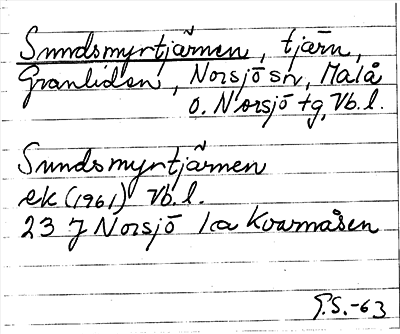 Sundsmyrtjärnen, tjärn,
Granliden, Norsjö sn, Malå
o. Norsjö tg, Vb. l.
Sundsmyrtjärnen
ek (1961) Vb. l.
23 J Norsjö 1a Kvarnåsen
G.S.-63